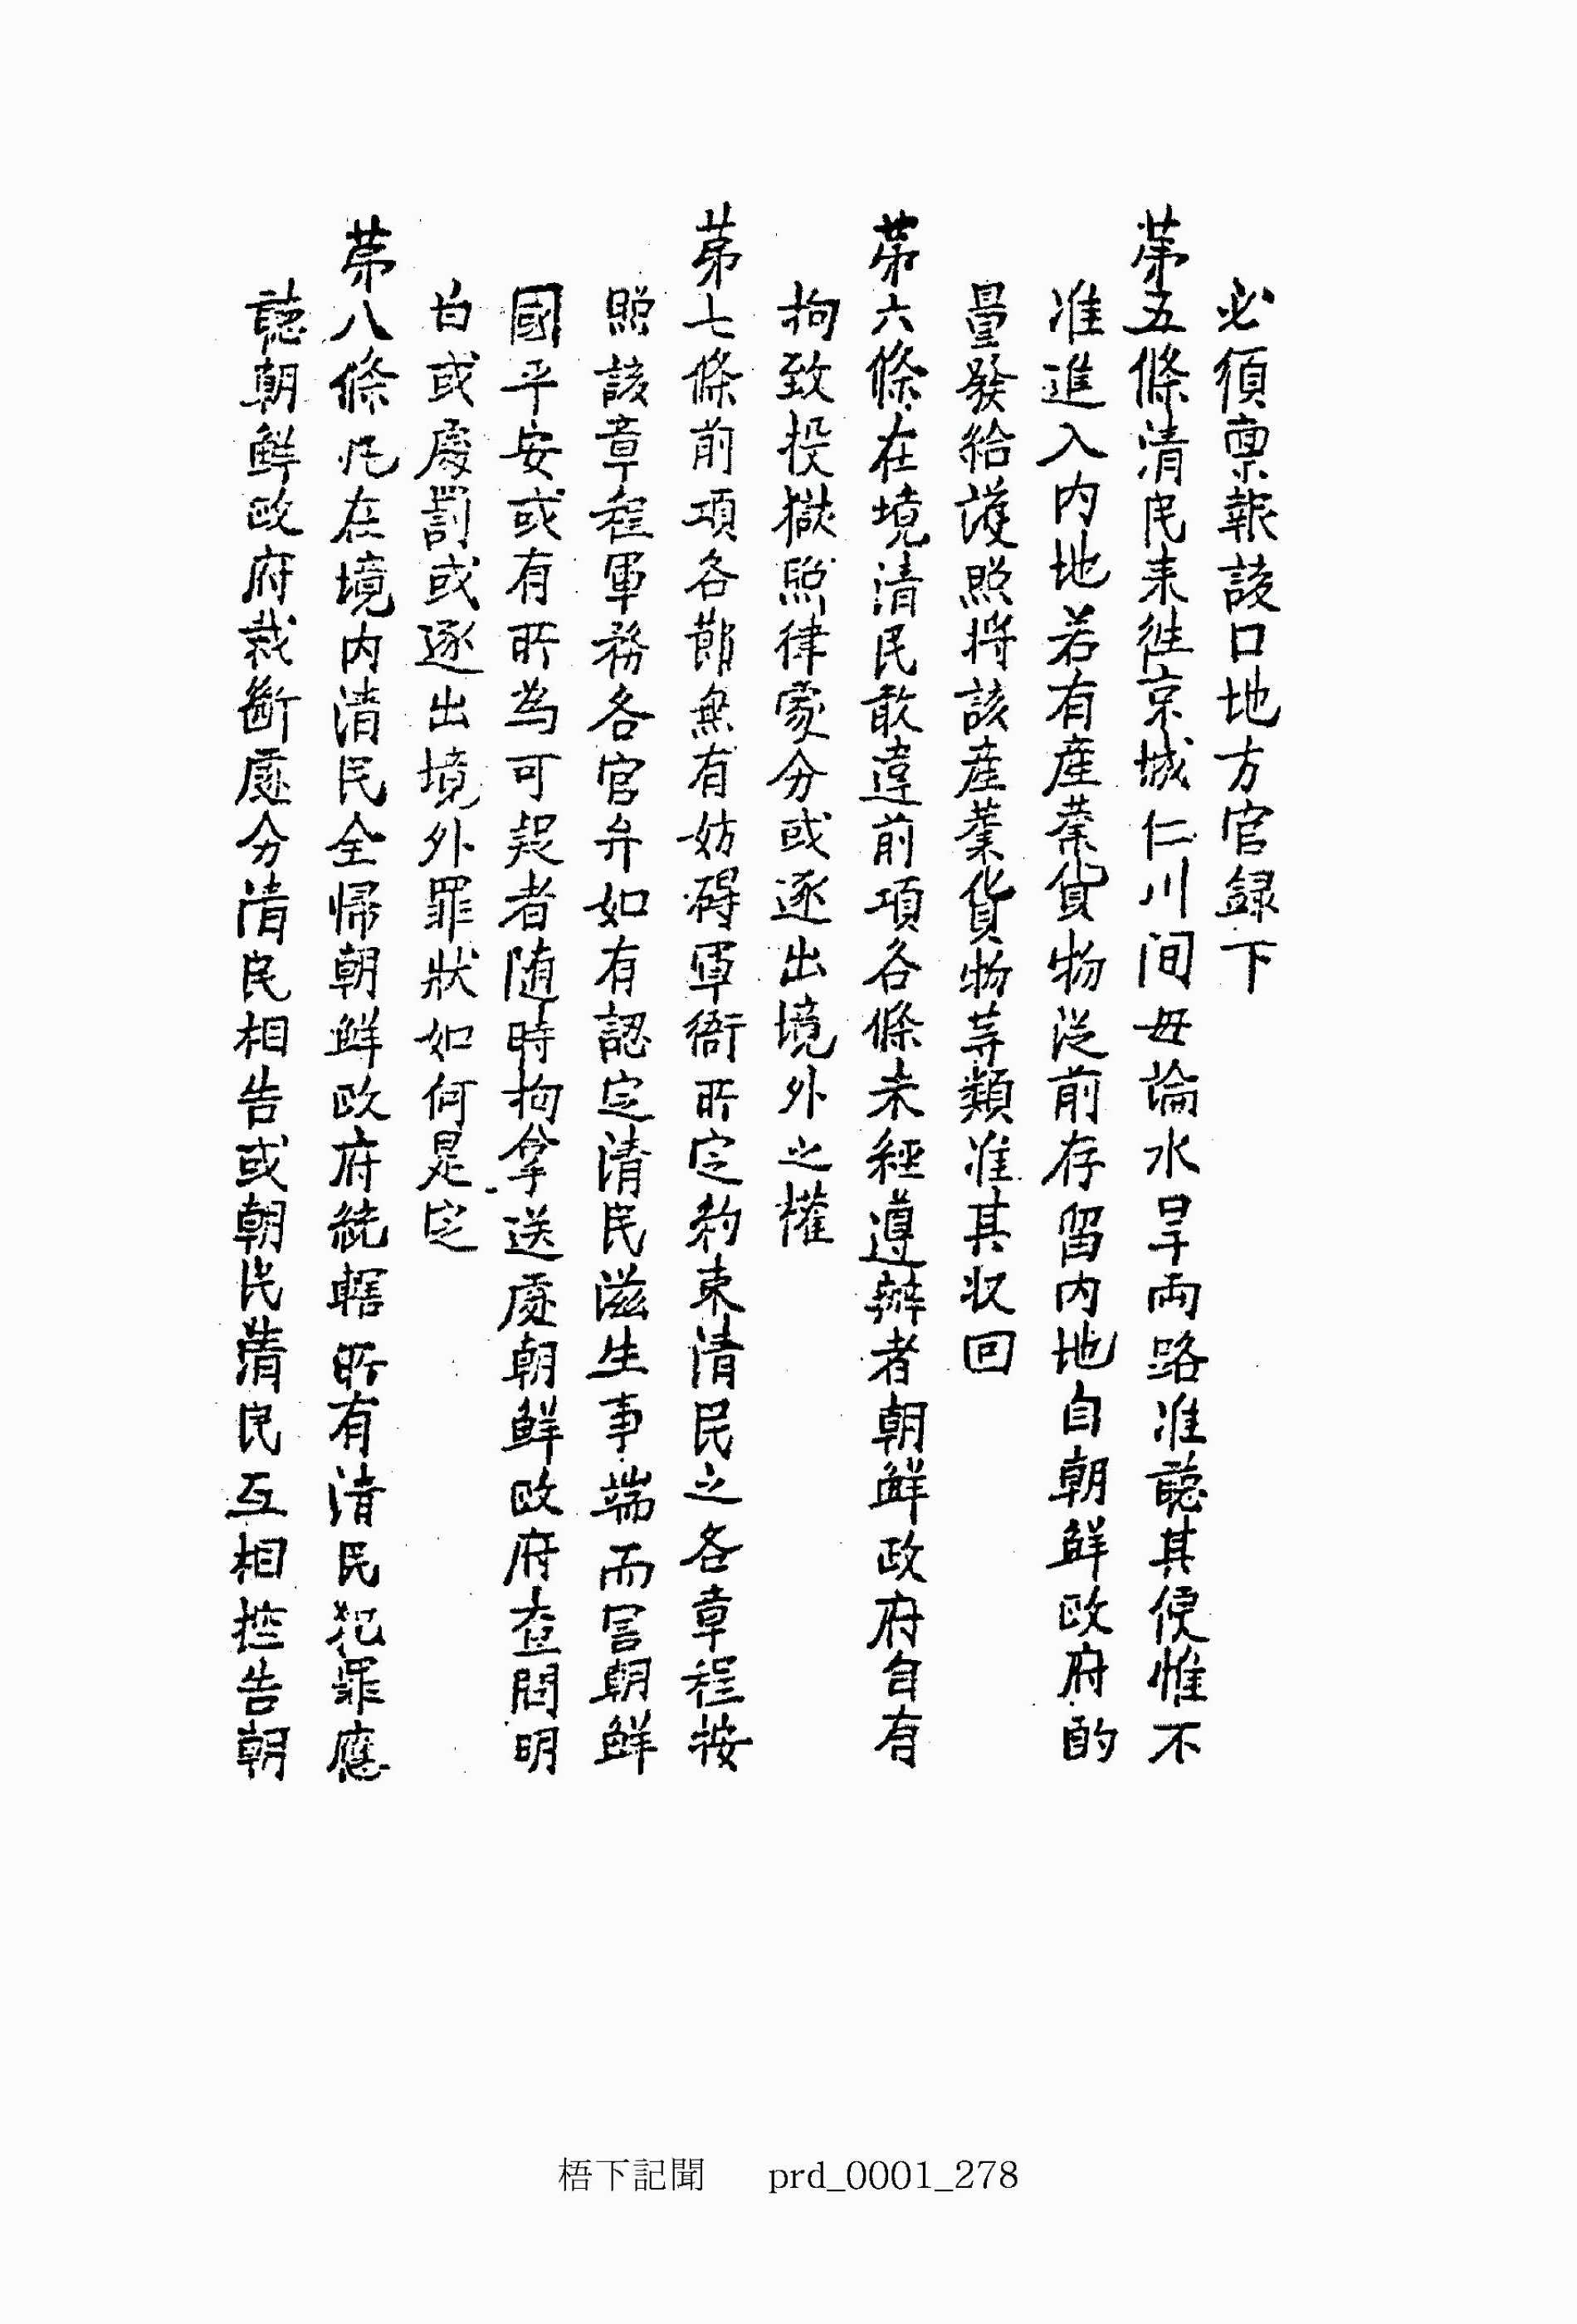 必須稟報該口地方官録下
第五條清民来往京城仁川间毋論水旱兩路准聽其便惟不
准進入内地若有産業貨物從前存留内地自朝鮮政府酌
量發給護照將該産業貨物等類准其収回
第六條在境清民敢違前項各條未經遵辦者朝鮮政府自有
拘致投獄照律蒙分或逐出境外之權
第七條前項各節無有妨碍軍衙所定約束清民之各章程按
照該章程軍務各官弁如有認定清民滋生事端而害朝鮮
國平安或有所為可疑者随時拘拿送處朝鮮政府查問明
白或處罰或逐出境外罪狀如何是定
第八條凡在境内清民全帰朝鮮政府統轄所有清民犯罪應
聽朝鮮政府裁斷處分清民相告或朝民清民互相控告朝
梧下記聞 prd_0001_278